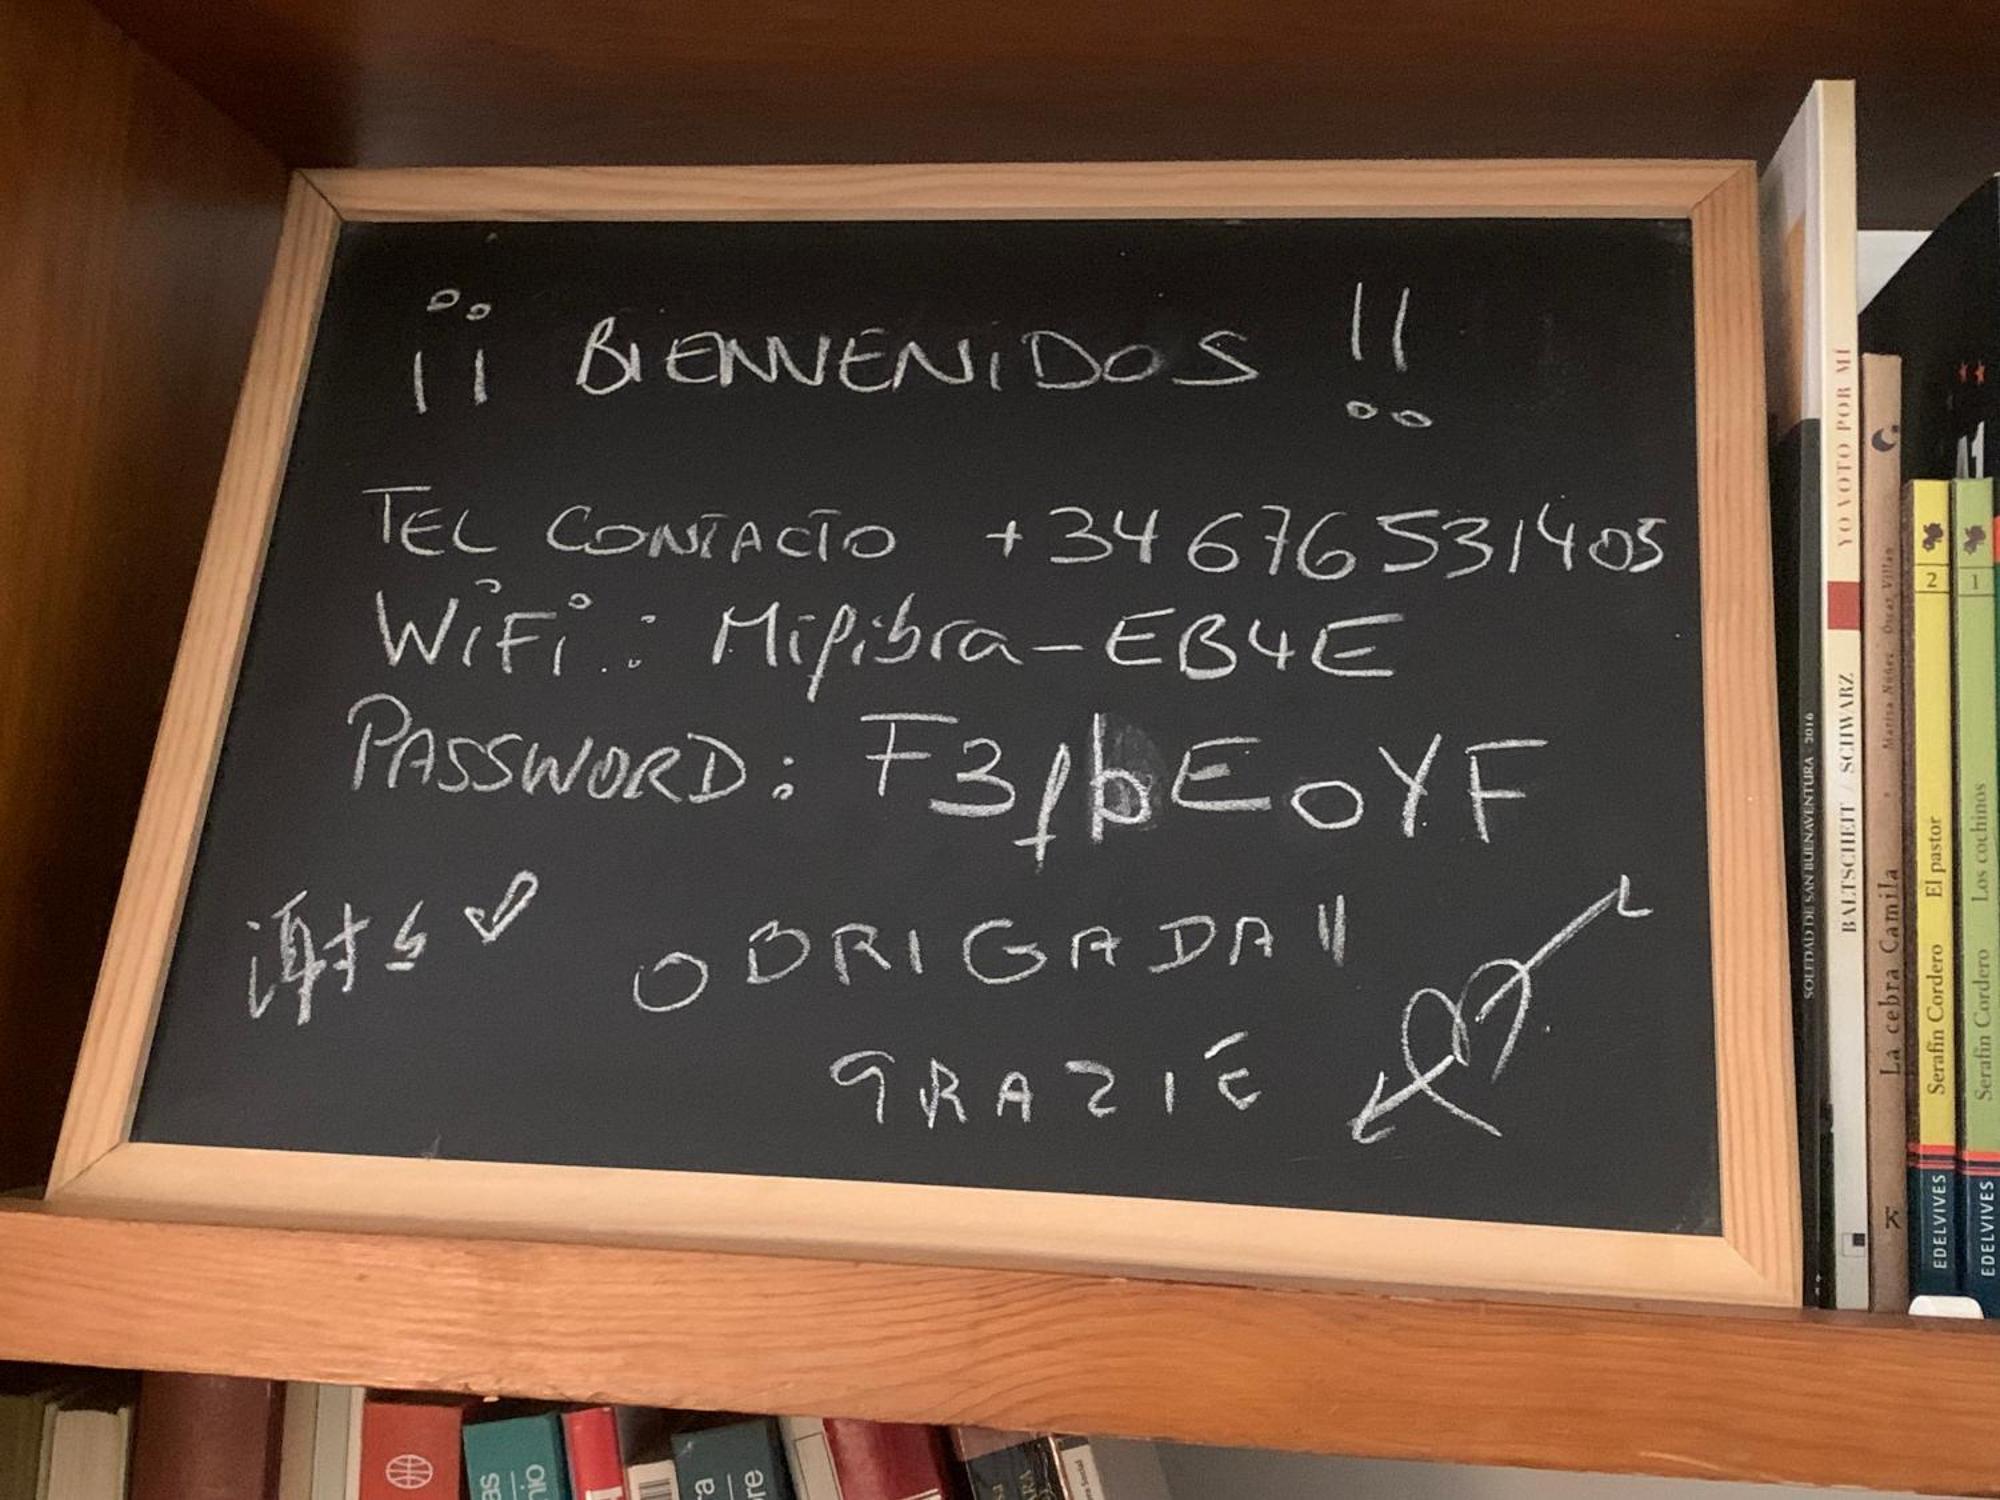 ¡¡ BIENVENIDOS !!
TEL CONTACTO +34 676531405
WiFi: Mifibra-EB4E
PASSWORD: F3fbEoYF
谢谢
OBRIGADA!!
GRAZIE
YO VOTO POR MÍ
BALTSCHEIT / SCHWARZ
SOLEDAD DE SAN BUENAVENTURA - 2016
La cebra Camila
Marisa Núñez Óscar Villán
2
Serafín Cordero El pastor
EDELVIVES
1
Serafín Cordero Los cochinos
EDELVIVES